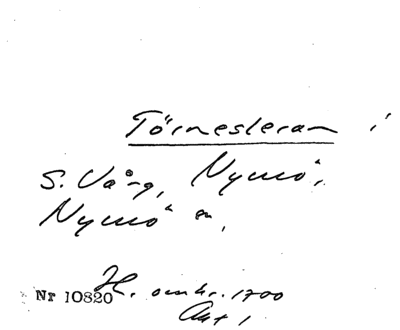 Törnesleran i
S. Vång, Nymö,
Nymö sn,
Nr 10820 H. omkr. 1700
Akt 1